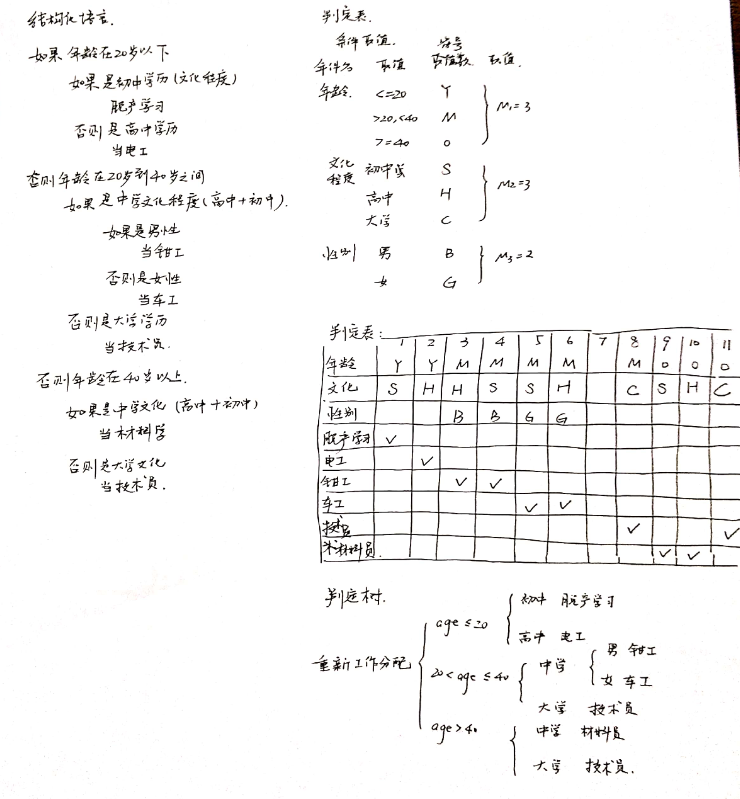 结构化语言.
如果 年龄在20岁以下
如果是初中学历(文化程度)
脱产学习
否则是高中学历
当电工
否则年龄在20岁到40岁之间
如果是中学文化程度(高中+初中).
如果是男性
当钳工
否则是女性
当车工
否则是大学学历
当技术员.
否则年龄在40岁以上.
如果是中学文化 (高中+初中)
当材料学
否则是大学文化
当技术员.
判定表.
条件取值. 符号
条件名 取值 取值数. 取值.
年龄. <=20 Y
>20,<40 M M₁=3
>=40 O
文化程度 初中 S
高中 H M₂=3
大学 C
性别 男 B M₃=2
女 G
判定表:
1 2 3 4 5 6 7 8 9 10 11
年龄 Y Y M M M M M O O O
文化 S H H S S H C S H C
性别 B B G G
脱产学习 ✓
电工 ✓
钳工 ✓ ✓
车工 ✓ ✓
技术员 ✓ ✓
材料员. ✓ ✓
判定树.
重新工作分配
age≤20
初中 脱产学习
高中 电工
20<age≤40
中学
男 钳工
女 车工
大学 技术员
age>40
中学 材料员
大学 技术员.